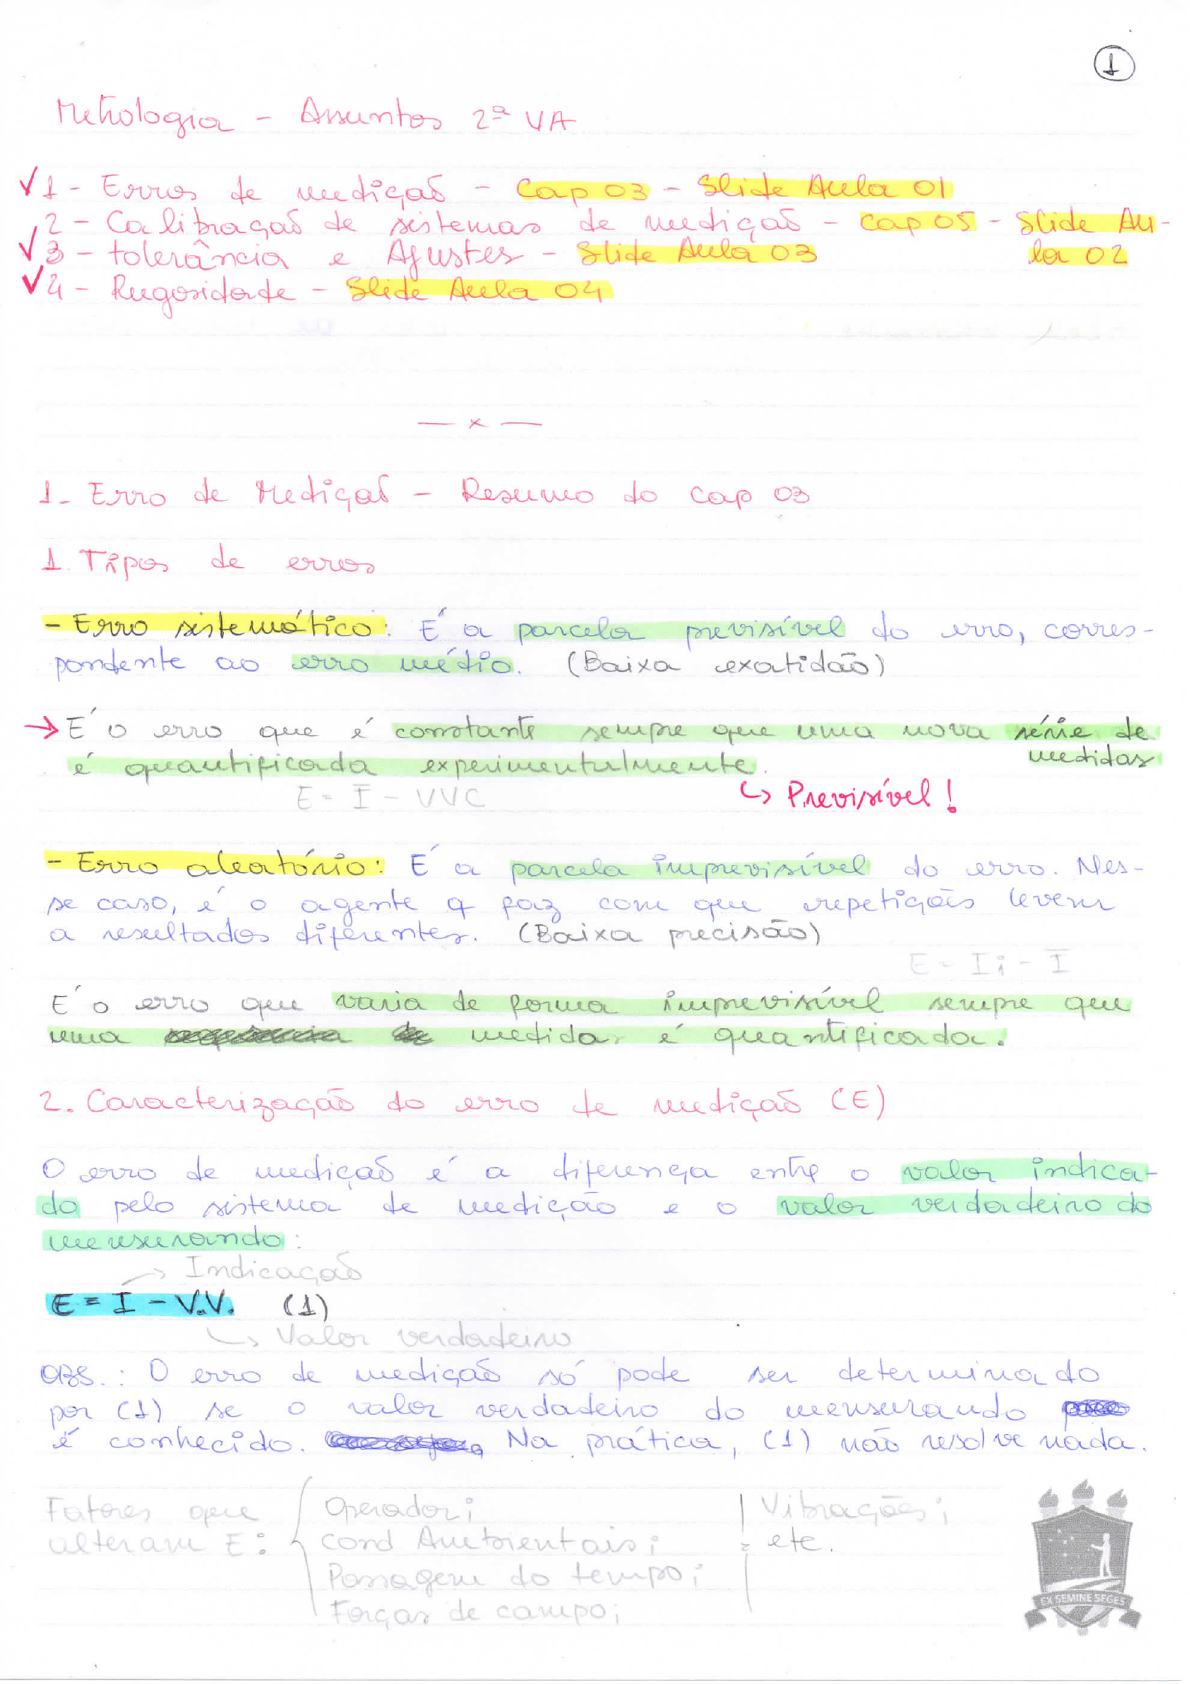 1
Metrologia - Assuntos 2ª VA
1 - Erros de medição - Cap 03 - Slide Aula 01
2 - Calibração de sistemas de medição - cap 05 - Slide Au-
la 02
3 - tolerância e Ajustes - Slide Aula 03
4 - Rugosidade - Slide Aula 04
— x —
1 - Erro de Medição - Resumo do cap 03
1. Tipos de erros
- Erro sistemático: É a parcela previsível do erro, corres-
pondente ao erro médio. (Baixa exatidão)
→ É o erro que é constante sempre que uma nova série de
medidas
é quantificada experimentalmente.
E = Ī - VVC
↳ Previsível!
- Erro aleatório: É a parcela imprevisível do erro. Nes-
se caso, é o agente q faz com que repetições levem
a resultados diferentes. (Baixa precisão)
E = Ii - Ī
É o erro que varia de forma imprevisível sempre que
uma medida é quantificada.
2. Caracterização do erro de medição (E)
O erro de medição é a diferença entre o valor indica-
do pelo sistema de medição e o valor verdadeiro do
mensurando:
→ Indicação
E = I - V.V. (1)
↳ Valor verdadeiro
OBS.: O erro de medição só pode ser determinado
por (1) se o valor verdadeiro do mensurando
é conhecido. Na prática, (1) não resolve nada.
Fatores que
alteram E:
Operador;
cond Ambientais;
Passagem do tempo;
Forças de campo;
Vibrações;
etc.
EX SEMINE SEGES